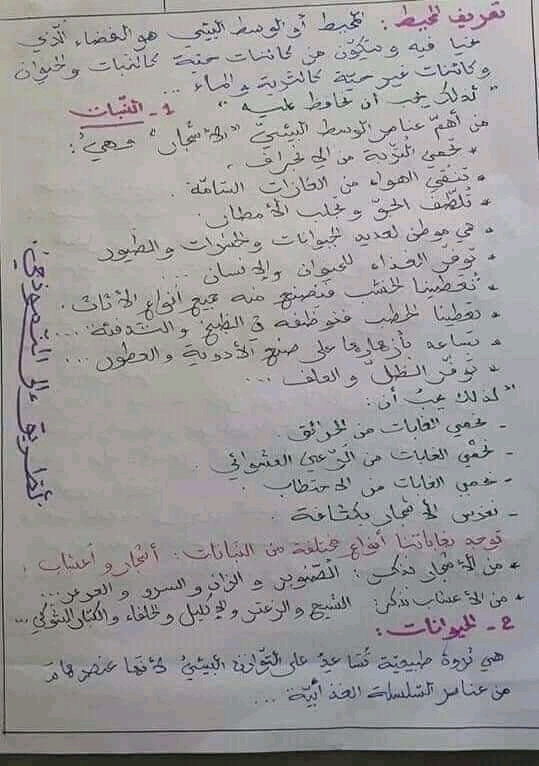 تعريف المحيط: المحيط أو الوسط البيئي هو الفضاء الذي
نحيا فيه ويتكوّن من كائنات حيّة كالنبات والحيوان
وكائنات غير حيّة كالتربة والماء ...
"لذلك يجب أن نحافظ عليه"
1 - النبات
من أهمّ عناصر الوسط البيئيّ "الأشجار" وهي:
* تحمي التُربة من الانجراف.
* تنقّي الهواء من الغازات السّامّة.
* تُلطّف الجوّ وتجلب الأمطار.
* هي موطن لعديد الحيوانات والحشرات والطيور
* توفّر الغذاء للحيوان والإنسان ...
* تُعطينا الخشب فنصنع منه جميع أنواع الأثاث.
* تعطينا الحطب فنوظفه في الطبخ والتدفئة ...
* تساعد بأزهارها على صنع الأدوية والعطور ...
* توفّر الظلّ والعلف ...
"لذلك يجبُ أن:
- نحمي الغابات من الحرائق.
- نحمي الغابات من الرّعي العشوائي.
- نحمي الغابات من الاحتطاب.
- نغرس الأشجار بكثافة.
توجد بغاباتنا أنواع مختلفة من النباتات: أشجار وأعشاب.
* من الأشجار نذكر: الصّنوبر والزّان والسرو والعرعر...
* من الأعشاب نذكر: الشيح والزعتر والإكليل والحلفاء والكبّار الشوكي...
2 - الحيوانات:
هي ثروة طبيعيّة تُساعدُ على التّوازن البيئيّ لأنّها عنصر هامّ
من عناصر السّلسلة الغذائيّة ...
الطريق إلى النموذجي